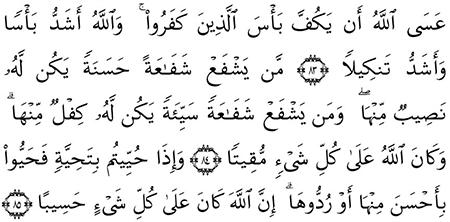 عَسَى ٱللَّهُ أَن يَكُفَّ بَأْسَ ٱلَّذِينَ كَفَرُوا۟ ۚ وَٱللَّهُ أَشَدُّ بَأْسًا
وَأَشَدُّ تَنكِيلًا ﴿٨٣﴾ مَّن يَشْفَعْ شَفَـٰعَةً حَسَنَةً يَكُن لَّهُۥ
نَصِيبٌ مِّنْهَا ۖ وَمَن يَشْفَعْ شَفَـٰعَةً سَيِّئَةً يَكُن لَّهُۥ كِفْلٌ مِّنْهَا ۗ
وَكَانَ ٱللَّهُ عَلَىٰ كُلِّ شَىْءٍ مُّقِيتًا ﴿٨٤﴾ وَإِذَا حُيِّيتُم بِتَحِيَّةٍ فَحَيُّوا۟
بِأَحْسَنَ مِنْهَا أَوْ رُدُّوهَا ۗ إِنَّ ٱللَّهَ كَانَ عَلَىٰ كُلِّ شَىْءٍ حَسِيبًا ﴿٨٥﴾